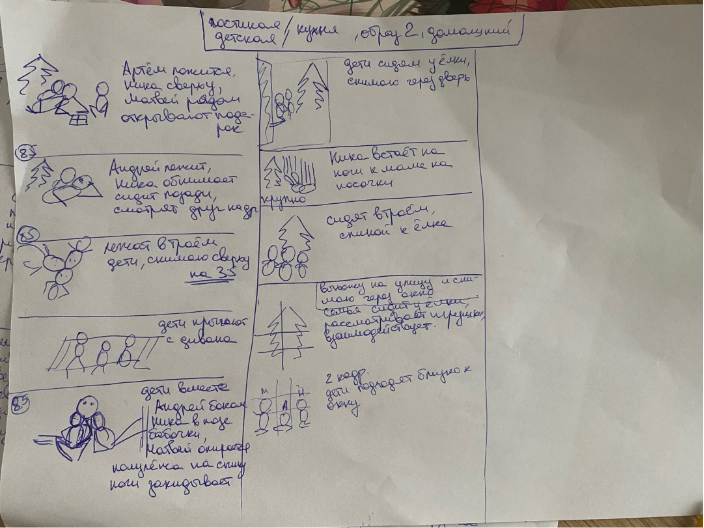 гостиная / кухня, образ 2, домашний
детская /
Артём ложится,
Ника сверху,
Матвей рядом
открывают пода-
рок
85
Андрей лежит,
Ника обнимает
сидит позади,
смотрят друг кадр
85
лежат втроём
дети, снимаю сверху
на 35
дети прыгают
с дивана
85
дети вместе
Андрей боком
Ника в позе
бабочки,
Матвей опирается
на спину
ноги закидывает
дети сидят у ёлки,
снимаю через дверь
Ника встаёт на
ноги к маме на
носочки
крупно
сидят втроём,
спиной к ёлке
выхожу на улицу и сни-
маю через окно
семья сидит у ёлки,
рассматривает игрушки,
взаимодействует.
2 кадр.
дети подходят близко к
окну
М А Н